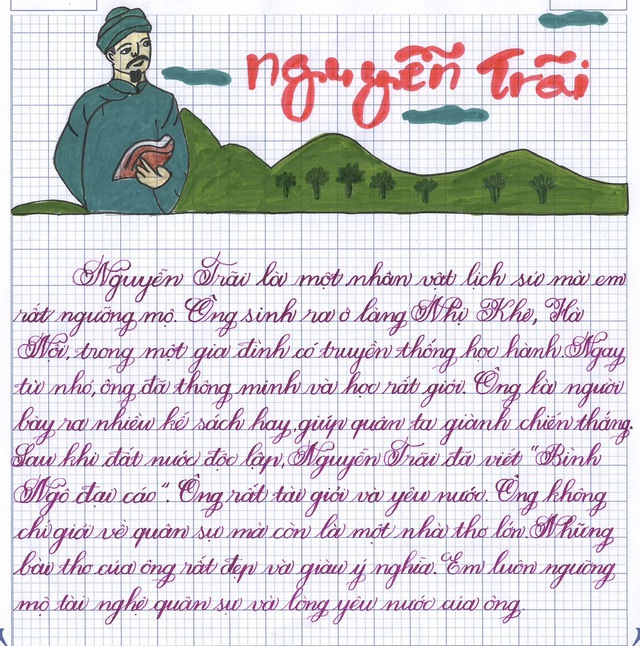 Nguyễn Trãi
Nguyễn Trãi là một nhân vật lịch sử mà em
rất ngưỡng mộ. Ông sinh ra ở làng Nhị Khê, Hà
Nội, trong một gia đình có truyền thống học hành. Ngay
từ nhỏ, ông đã thông minh và học rất giỏi. Ông là người
bày ra nhiều kế sách hay, giúp quân ta giành chiến thắng.
Sau khi đất nước độc lập, Nguyễn Trãi đã viết "Bình
Ngô đại cáo". Ông rất tài giỏi và yêu nước. Ông không
chỉ giỏi về quân sự mà còn là một nhà thơ lớn. Những
bài thơ của ông rất đẹp và giàu ý nghĩa. Em luôn ngưỡng
mộ tài nghệ quân sự và lòng yêu nước của ông.